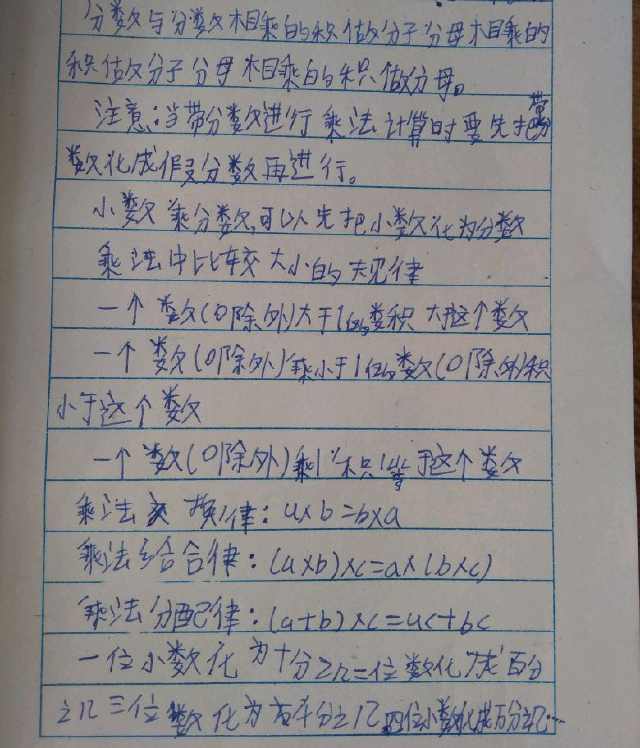 分数与分数相乘的积做分子分母相乘的
积做分子分母相乘的积做分母。
注意:当带分数进行乘法计算时要先把带分
数化成假分数再进行。
小数乘分数,可以先把小数化为分数
乘法中比较大小的规律
一个数(0除外)大于1的数积大于这个数
一个数(0除外)乘小于1的数(0除外)积
小于这个数
一个数(0除外)乘1积等于这个数
乘法交换律:a×b=b×a
乘法结合律:(a×b)×c=a×(b×c)
乘法分配律:(a+b)×c=ac+bc
一位小数化为十分之几二位数化成百分
之几三位数化为千分之几四位小数化成万分之几…